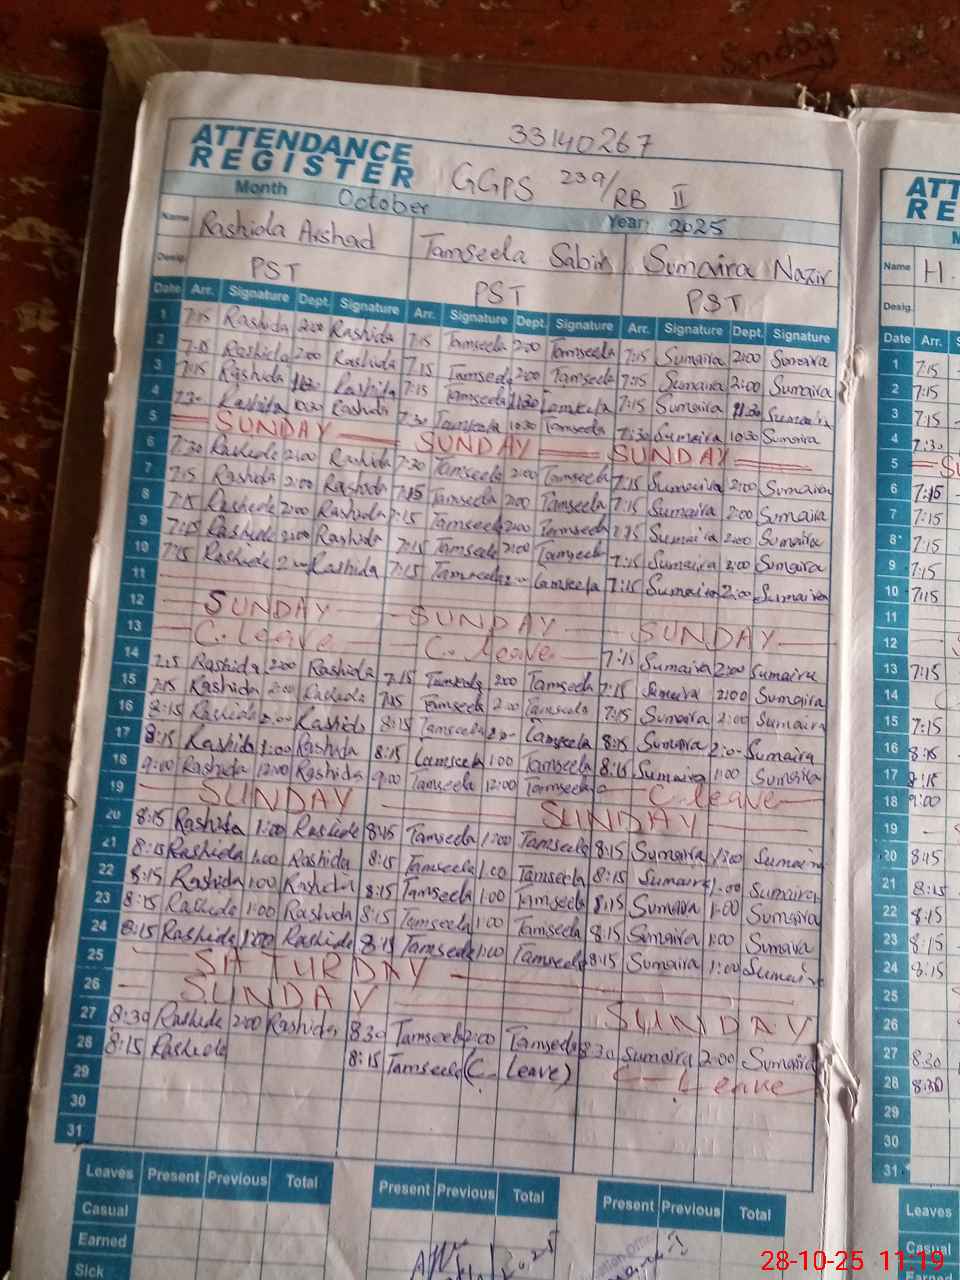 Sunday
33140267
ATTENDANCE
REGISTER
GGPS 239/RB II
Month October Year: 2025
Name Rashida Arshad Tamseela Sabir Sumaira Nazir
Desig. PST PST PST
Date Arr. Signature Dept. Signature Arr. Signature Dept. Signature Arr. Signature Dept. Signature
1 7:15 Rashida 2:00 Rashida 7:15 Tamseela 2:00 Tamseela 7:15 Sumaira 2:00 Sumaira
2 7:15 Rashida 2:00 Rashida 7:15 Tamseela 2:00 Tamseela 7:15 Sumaira 2:00 Sumaira
3 7:15 Rashida 11:30 Rashida 7:15 Tamseela 11:30 Tamseela 7:15 Sumaira 11:30 Sumaira
4 7:30 Rashida 10:30 Rashida 7:30 Tamseela 10:30 Tamseela 7:30 Sumaira 10:30 Sumaira
5 SUNDAY SUNDAY SUNDAY
6 7:30 Rashida 2:00 Rashida 7:30 Tamseela 2:00 Tamseela 7:15 Sumaira 2:00 Sumaira
7 7:15 Rashida 2:00 Rashida 7:15 Tamseela 2:00 Tamseela 7:15 Sumaira 2:00 Sumaira
8 7:15 Rashida 2:00 Rashida 7:15 Tamseela 2:00 Tamseela 7:15 Sumaira 2:00 Sumaira
9 7:15 Rashida 2:00 Rashida 7:15 Tamseela 2:00 Tamseela 7:15 Sumaira 2:00 Sumaira
10 7:15 Rashida 2 Rashida 7:15 Tamseela 2 Tamseela 7:15 Sumaira 2:00 Sumaira
11
12 SUNDAY SUNDAY SUNDAY
13 C. leave C. leave 7:15 Sumaira 2:00 Sumaira
14 7:15 Rashida 2:00 Rashida 7:15 Tamseela 2:00 Tamseela 7:15 Sumaira 2:00 Sumaira
15 7:15 Rashida 2:00 Rashida 7:15 Tamseela 2:00 Tamseela 7:15 Sumaira 2:00 Sumaira
16 8:15 Rashida 2:00 Rashida 8:15 Tamseela 2 Tamseela 8:15 Sumaira 2:0 Sumaira
17 8:15 Rashida 1:00 Rashida 8:15 Tamseela 1:00 Tamseela 8:15 Sumaira 1:00 Sumaira
18 9:00 Rashida 12:00 Rashida 9:00 Tamseela 12:00 Tamseela C. leave
19 SUNDAY SUNDAY
20 8:15 Rashida 1:00 Rashida 8:15 Tamseela 1:00 Tamseela 8:15 Sumaira 1:00 Sumaira
21 8:15 Rashida 1:00 Rashida 8:15 Tamseela 1:00 Tamseela 8:15 Sumaira 1:00 Sumaira
22 8:15 Rashida 1:00 Rashida 8:15 Tamseela 1:00 Tamseela 8:15 Sumaira 1:00 Sumaira
23 8:15 Rashida 1:00 Rashida 8:15 Tamseela 1:00 Tamseela 8:15 Sumaira 1:00 Sumaira
24 8:15 Rashida 1:00 Rashida 8:15 Tamseela 1:00 Tamseela 8:15 Sumaira 1:00 Sumaira
25 SATURDAY
26 SUNDAY SUNDAY
27 8:30 Rashida 2:00 Rashida 8:30 Tamseela 2:00 Tamseela 8:30 Sumaira 2:00 Sumaira
28 8:15 Rashida 8:15 Tamseela (C. Leave) C-Leave
29
30
31
Leaves Present Previous Total Present Previous Total Present Previous Total
Casual
Earned
Sick
ATT
RE
M
Name H.
Desig.
Date Arr. S
1 7:15
2 7:15
3 7:15
4 7:30
5 SU
6 7:15
7 7:15
8 7:15
9 7:15
10 7:15
11
12
13 7:15
14
15 7:15
16 8:15
17 8:15
18 9:00
19
20 8:15
21 8:15
22 8:15
23 8:15
24 8:15
25
26
27 8:30
28 8:30
29
30
31
Leaves
Casual
Earned
28-10-25 11:19